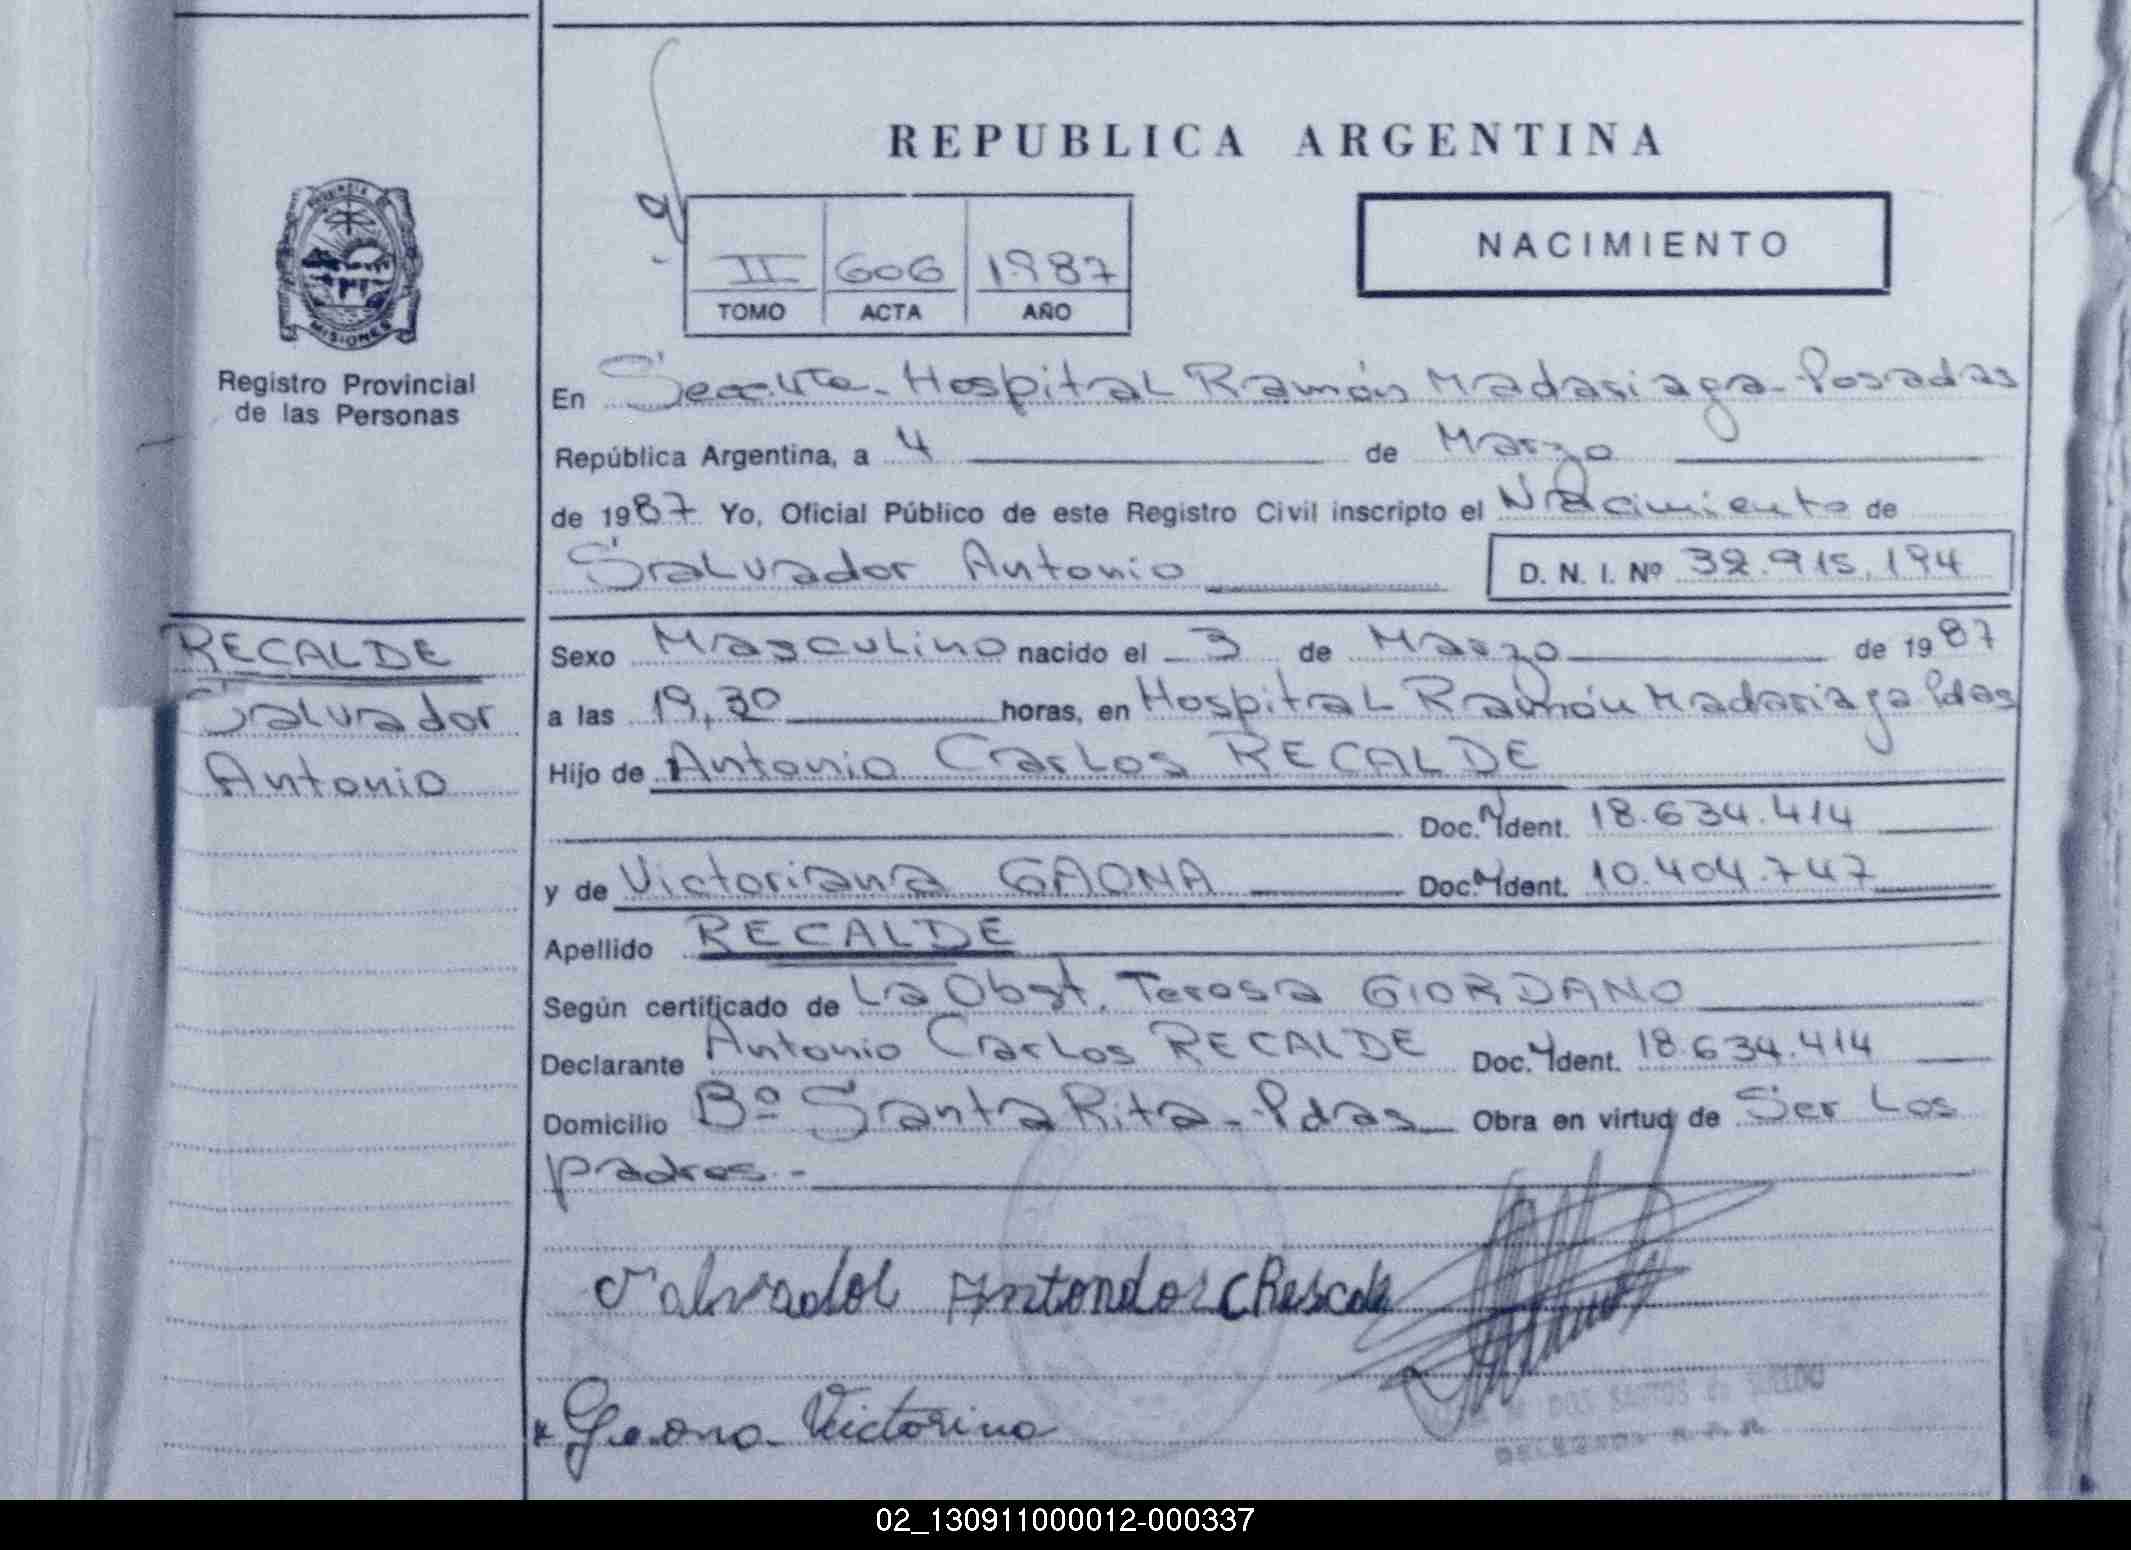 REPUBLICA ARGENTINA
II 606 1987
TOMO ACTA AÑO
NACIMIENTO
PROVINCIA
MISIONES
Registro Provincial
de las Personas
En Hospital Ramón Madariaga - Posadas
República Argentina, a 4 de Marzo
de 1987 Yo, Oficial Público de este Registro Civil inscripto el Nacimiento de
Salvador Antonio D. N. I. Nº 32.915.194
RECALDE
Salvador
Antonio
Sexo Masculino nacido el 3 de Marzo de 1987
a las 19,30 horas, en Hospital Ramón Madariaga Pdas
Hijo de Antonio Carlos RECALDE
Doc. Ydent. 18.634.414
y de Victoriana GAONA Doc. Ydent. 10.404.747
Apellido RECALDE
Según certificado de La Obst. Teresa GIORDANO
Declarante Antonio Carlos RECALDE Doc. Ydent. 18.634.414
Domicilio Bº Santa Rita - Pdas Obra en virtud de Ser Los
padres.-
Salvador
Gaona Victorina
DOS SANTOS de
02_130911000012-000337